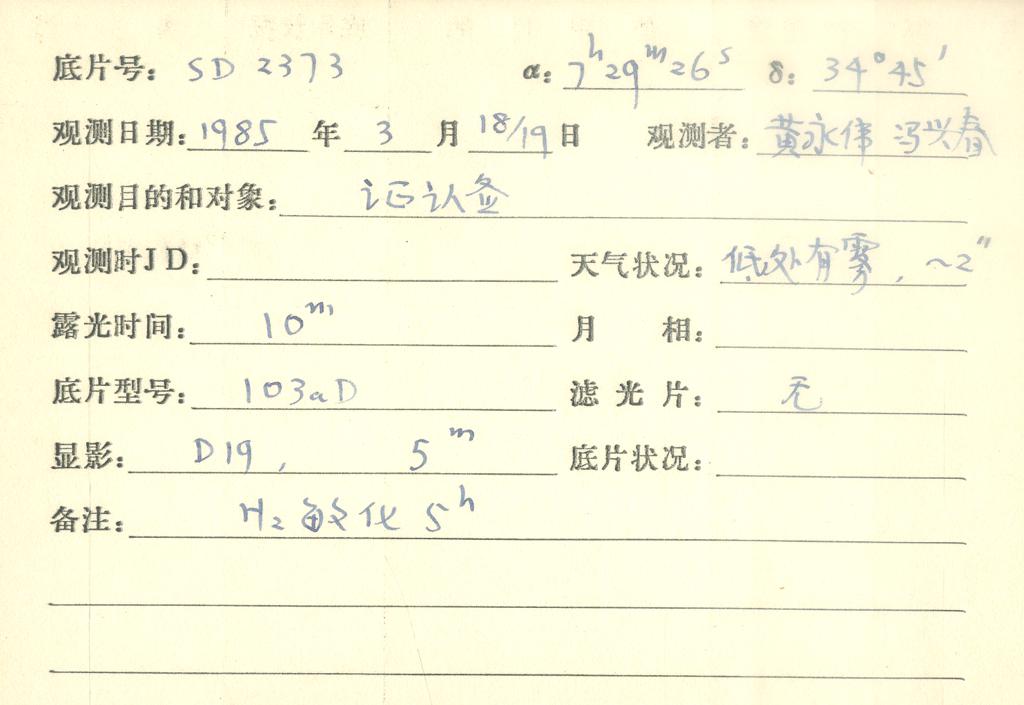 底片号: SD 2373 α: 7h29m26s δ: 34°45′
观测日期: 1985 年 3 月 18/19 日 观测者: 黄永伟 冯兴春
观测目的和对象: 证认签
观测时JD: 天气状况: 低处有雾, ~2″
露光时间: 10m 月 相:
底片型号: 103aD 滤光片: 无
显影: D19, 5m 底片状况:
备注: H2 敏化 5h